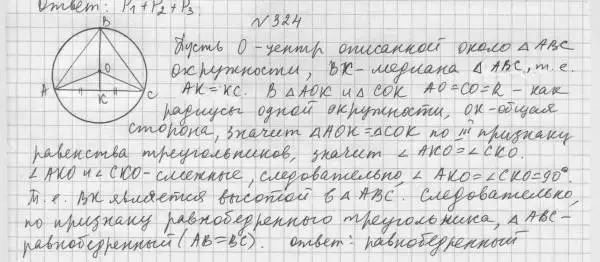 Ответ: P₁+P₂+P₃.
N 324
B
A
O
K
C
Пусть O - центр описанной около △ABC
окружности, BK-медиана △ABC, т.е.
AK = KC. В △AOK и △COK AO=CO=R - как
радиусы одной окружности, OK-общая
сторона, значит △AOK=△COK по III признаку
равенства треугольников, значит ∠AKO=∠CKO.
∠AKO и ∠CKO-смежные, следовательно, ∠AKO=∠CKO=90°.
Т.е. BK является высотой в △ABC. Следовательно,
по признаку равнобедренного треугольника, △ABC-
равнобедренный (AB=BC). Ответ: равнобедренный